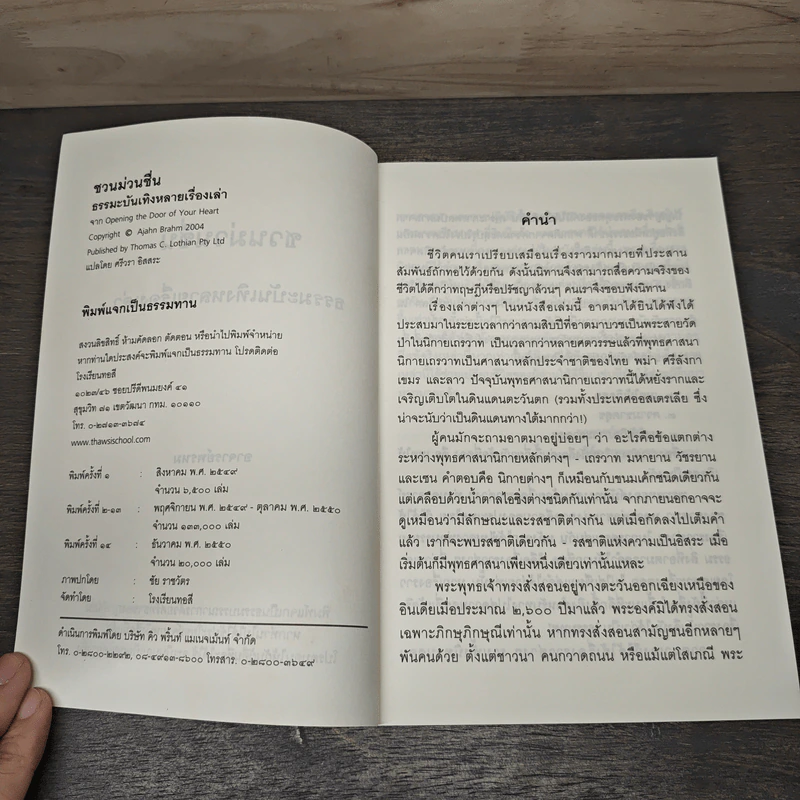 ชวนม่วนชื่น
ธรรมะบันเทิงหลายเรื่องเล่า
จาก Opening the Door of Your Heart
Copyright © Ajahn Brahm 2004
Published by Thomas C. Lothian Pty Ltd
แปลโดย ศรีวรา อิสสระ
พิมพ์แจกเป็นธรรมทาน
สงวนลิขสิทธิ์ ห้ามคัดลอก ตัดตอน หรือนำไปพิมพ์จำหน่าย
หากท่านใดประสงค์จะพิมพ์แจกเป็นธรรมทาน โปรดติดต่อ
โรงเรียนทอสี
๑๐๒๓/๔๖ ซอยปรีดีพนมยงค์ ๔๑
สุขุมวิท ๗๑ เขตวัฒนา กทม. ๑๐๑๑๐
โทร. ๐-๒๗๑๓-๓๖๗๔
www.thawsischool.com
พิมพ์ครั้งที่ ๑ : สิงหาคม พ.ศ. ๒๕๔๙
จำนวน ๖,๕๐๐ เล่ม
พิมพ์ครั้งที่ ๒-๑๓ : พฤศจิกายน พ.ศ. ๒๕๔๙ - ตุลาคม พ.ศ. ๒๕๕๐
จำนวน ๑๓๓,๐๐๐ เล่ม
พิมพ์ครั้งที่ ๑๔ : ธันวาคม พ.ศ. ๒๕๕๐
จำนวน ๒๐,๐๐๐ เล่ม
ภาพปกโดย : ชัย ราชวัตร
จัดทำโดย : โรงเรียนทอสี
ดำเนินการพิมพ์โดย บริษัท คิว พริ้นท์ แมเนจเม้นท์ จำกัด
โทร. ๐-๒๘๐๐-๒๒๙๒, ๐๘-๔๙๑๓-๘๖๐๐ โทรสาร. ๐-๒๘๐๐-๓๖๔๙
คำนำ
ชีวิตคนเราเปรียบเสมือนเรื่องราวมากมายที่ประสาน
สัมพันธ์ถักทอไว้ด้วยกัน ดังนั้นนิทานจึงสามารถสื่อความจริงของ
ชีวิตได้ดีกว่าทฤษฎีหรือปรัชญาล้วนๆ คนเราจึงชอบฟังนิทาน
เรื่องเล่าต่างๆ ในหนังสือเล่มนี้ อาตมาได้ยินได้ฟังได้
ประสบมาในระยะเวลากว่าสามสิบปีที่อาตมาบวชเป็นพระสายวัด
ป่าในนิกายเถรวาท เป็นเวลากว่าหลายศตวรรษแล้วที่พุทธศาสนา
นิกายเถรวาทเป็นศาสนาหลักประจำชาติของไทย พม่า ศรีลังกา
เขมร และลาว ปัจจุบันพุทธศาสนานิกายเถรวาทนี้ได้หยั่งรากและ
เจริญเติบโตในดินแดนตะวันตก (รวมทั้งประเทศออสเตรเลีย ซึ่ง
น่าจะนับว่าเป็นดินแดนทางใต้มากกว่า!)
ผู้คนมักจะถามอาตมาอยู่บ่อยๆ ว่า อะไรคือข้อแตกต่าง
ระหว่างพุทธศาสนานิกายหลักต่างๆ - เถรวาท มหายาน วัชรยาน
และเซน คำตอบคือ นิกายต่างๆ ก็เหมือนกับขนมเค้กชนิดเดียวกัน
แต่เคลือบด้วยน้ำตาลไอซิ่งต่างชนิดกันเท่านั้น จากภายนอกอาจจะ
ดูเหมือนว่ามีลักษณะและรสชาติต่างกัน แต่เมื่อกัดลงไปเต็มคำ
แล้ว เราก็จะพบรสชาติเดียวกัน - รสชาติแห่งความเป็นอิสระ เมื่อ
เริ่มต้นก็มีพุทธศาสนาเพียงหนึ่งเดียวเท่านั้นแหละ
พระพุทธเจ้าทรงสั่งสอนอยู่ทางตะวันออกเฉียงเหนือของ
อินเดียเมื่อประมาณ ๒,๖๐๐ ปีมาแล้ว พระองค์มิได้ทรงสั่งสอน
เฉพาะภิกษุภิกษุณีเท่านั้น หากทรงสั่งสอนสามัญชนอีกหลายๆ
พันคนด้วย ตั้งแต่ชาวนา คนกวาดถนน หรือแม้แต่โสเภณี พระ